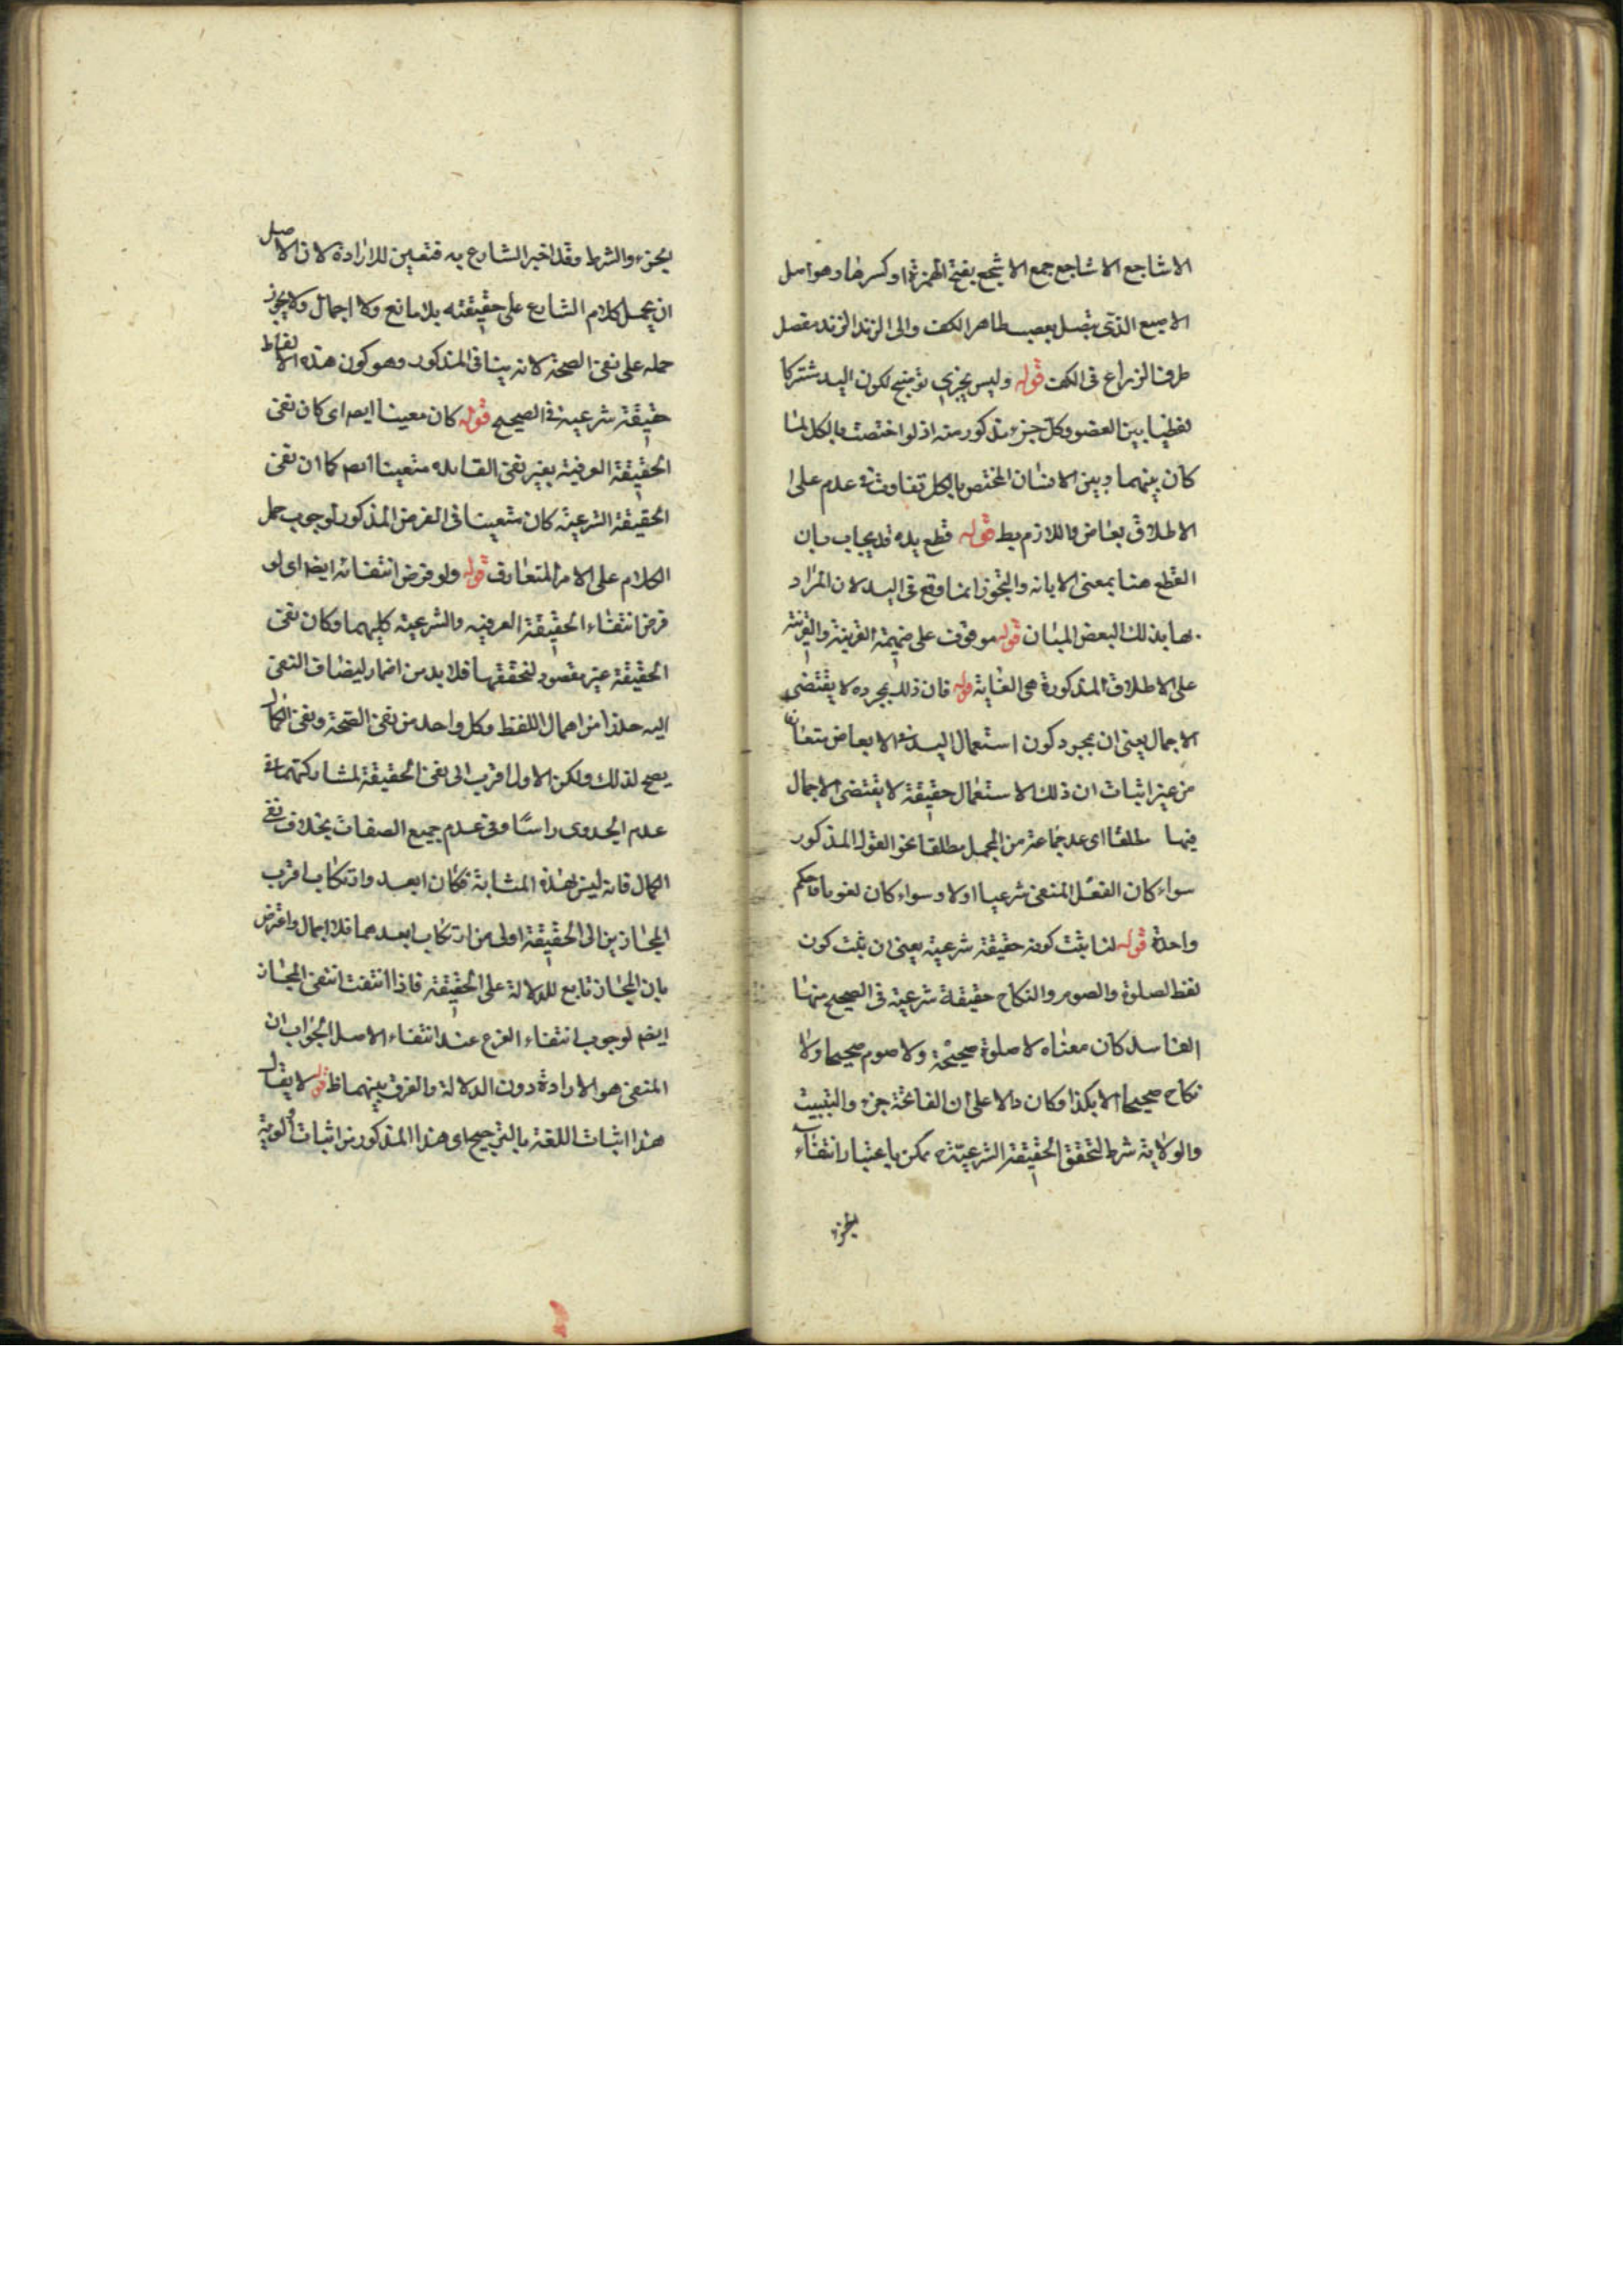 الاشاجع الاشاجع جمع الاشجع بفتح الهمزة او كسرها وهو اصل
الاصبع الذى يتصل بعصب ظاهر الكف والى الزند الزند مفصل
طرف الزراع فى الكف قوله وليس بجزى توضيح لكون اليد مشتركا
لفظيا بين العضو وكل جزء مذكور منه اذ لو اختصت بالكل لما
كان بينهما وبين الانسان المختص بالكل تفاوت فى عدم على
الاطلاق بعاض واللازم بط قوله قطع يده قد يجاب بان
القطع هنا بمعنى الابانه والتجوز انما وقع فى اليد لان المراد
بها بذلك البعض المبان قوله موقوف على ضميمة القرينة والقرينة
على الاطلاق المذكورة هى الغاية قوله فان ذلك بمجرده لا يقتضى
الاجمال يعنى ان مجرد كون استعمال اليد فى الابعاض متعارف
من غير اثبات ان ذلك الاستعمال حقيقة لا يقتضى الاجمال
فيها مطلقا اى عد جماعة من المجمل مطلقا نحو القول المذكور
سواء كان الفعل المنفى شرعيا اولا وسواء كان لغويا فاحكم
واحدة قوله لنا يثبت كونه حقيقة شرعية يعنى ان يثبت كون
لفظ لصلوة والصوم والنكاح حقيقة شرعية فى الصحيح منها
الفاسد كان معناه لا صلوة صحيحة ولا صوم صحيحا ولا
نكاح صحيحا الا بكذا وكان دالا على ان الفاتحة جزء والتبييت
والولاية شرط لتحقق الحقيقة الشرعية ممكن باعتبار انتفاء
لجزء
الجزء والشرط وقد اخبر الشارع به فتعين للارادة لان الاصل
ان يحمل كلام الشارع على حقيقته بلا مانع ولا اجمال ولا يجوز
حمله على نفى الصحة لانه ينافى المذكور وهو كون هذه الالفاظ
حقيقة شرعية فى الصحيح قوله كان معينا ايضا اى كان نفى
الحقيقة العرفية بغير نفى الفايده متعينا ايضا كما ان نفى
الحقيقة الشرعية كان متعينا فى الفرض المذكور لوجوب حمل
الكلام على الامر المتعارف قوله ولو فرض انتفائه ايضا اى لو
فرض انتفاء الحقيقة العرفيه والشرعية كليهما وكان نفى
الحقيقة غير مقصود لتحققها فلا بد من اضمار ليضاف النفى
اليه حذرا من اهمال اللفظ وكل واحد من نفى الصحة ونفى الكمال
يصح لذلك ولكن الاول اقرب الى نفى الحقيقة لمشاركتهما فى
عدم الجدوى راسًا وفى عدم جميع الصفات بخلاف نفى
الكمال فانه ليس بهذه المثابة فكان ابعد وارتكاب اقرب
المجازين الى الحقيقة اولى من ارتكاب ابعدهما فلا اجمال واعترض
بان المجاز تابع للدلالة على الحقيقة فاذا انتفت انتفى المجاز
ايضا لوجوب انتفاء الفرع عند انتفاء الاصل الجواب ان
المنفى هو الارادة دون الدلالة والفرق بينهما ظ قوله لا يقال
هذا اثبات اللغة بالترجيح اى هذا المذكور من اثبات اولوية